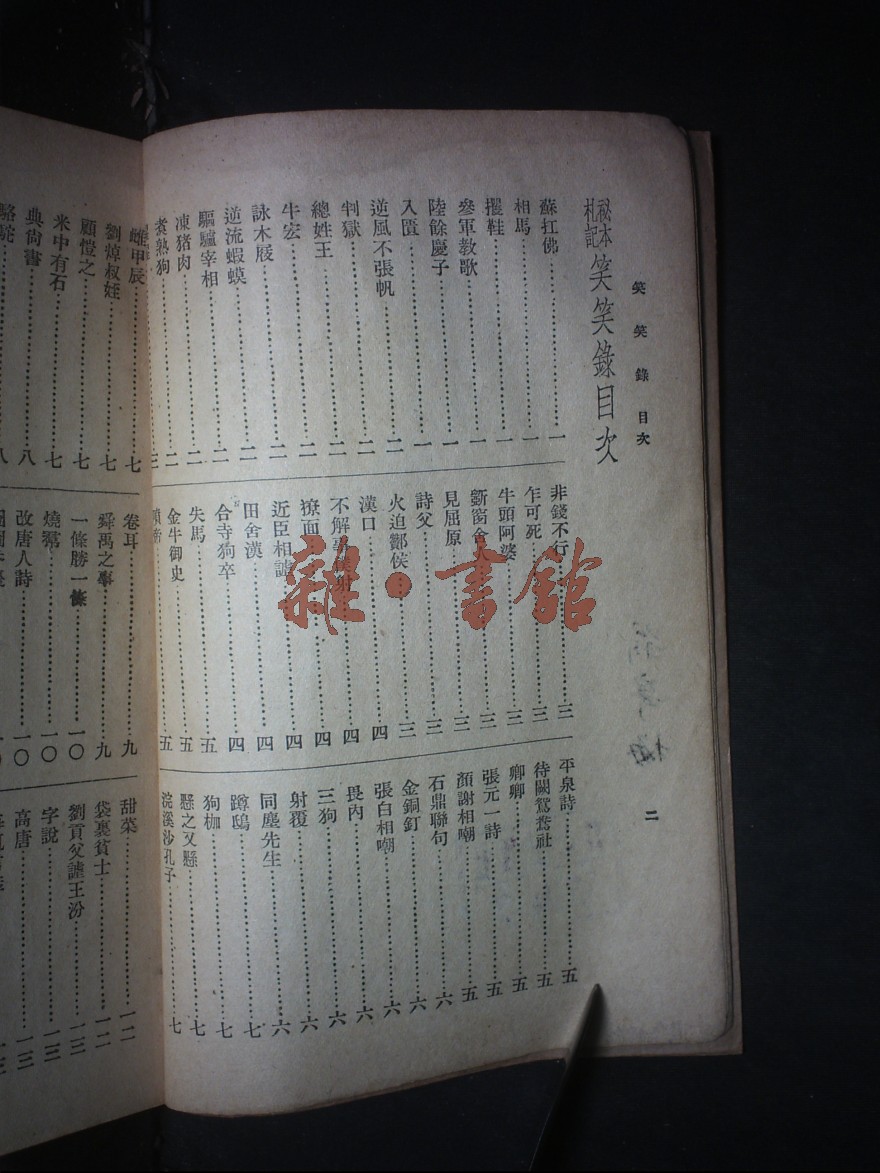 笑笑錄目次
二
秘本札記 笑笑錄目次
蘇扛佛……一
相馬……一
擢鞋……一
參軍教歌……一
陸餘慶子……一
入匱……一
逆風不張帆……二
判獄……二
總姓王……二
牛宏……二
詠木屐……二
逆流蝦蟆……二
驅驢宰相……二
凍猪肉……二
煑熟狗……三
非錢不行……三
乍可死……三
牛頭阿婆……三
斵窗舍人……三
見屈原……三
詩父……三
火迫酇侯……三
漢口……四
不解……四
撩面……四
近臣相謔……四
田舍漢……四
合寺狗卒……四
失馬……五
金牛御史……五
平泉詩……五
待闕鴛鴦社……五
卿卿……五
張元一詩……五
顏謝相嘲……五
石鼎聯句……六
金銅釘……六
張白相嘲……六
畏內……六
三狗……六
射覆……六
同塵先生……六
蹲鴟……七
狗枷……七
懸之又懸……七
浣溪沙孔子……七
雌甲辰……七
劉焯叔姪……七
顧愷之……七
米中有石……七
典尙書……八
駱駝……八
卷耳……九
舜禹之事……九
一條勝一條……一〇
燒鵞……一〇
改唐人詩……一〇
甜菜……一二
袋裏貧士……一二
劉貢父謔王汾……一三
字說……一三
高唐……一三
雜·書館